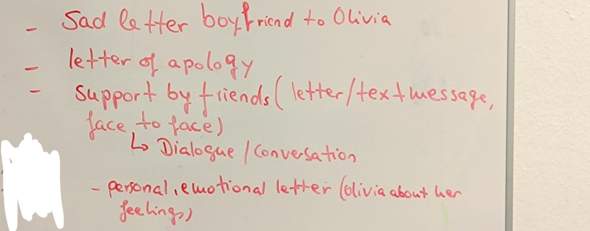 - Sad letter boyfriend to Olivia
- letter of apology
- support by friends (letter/text message,
face to face)
↳ Dialogue / Conversation
- personal, emotional letter (Olivia about her
feelings)